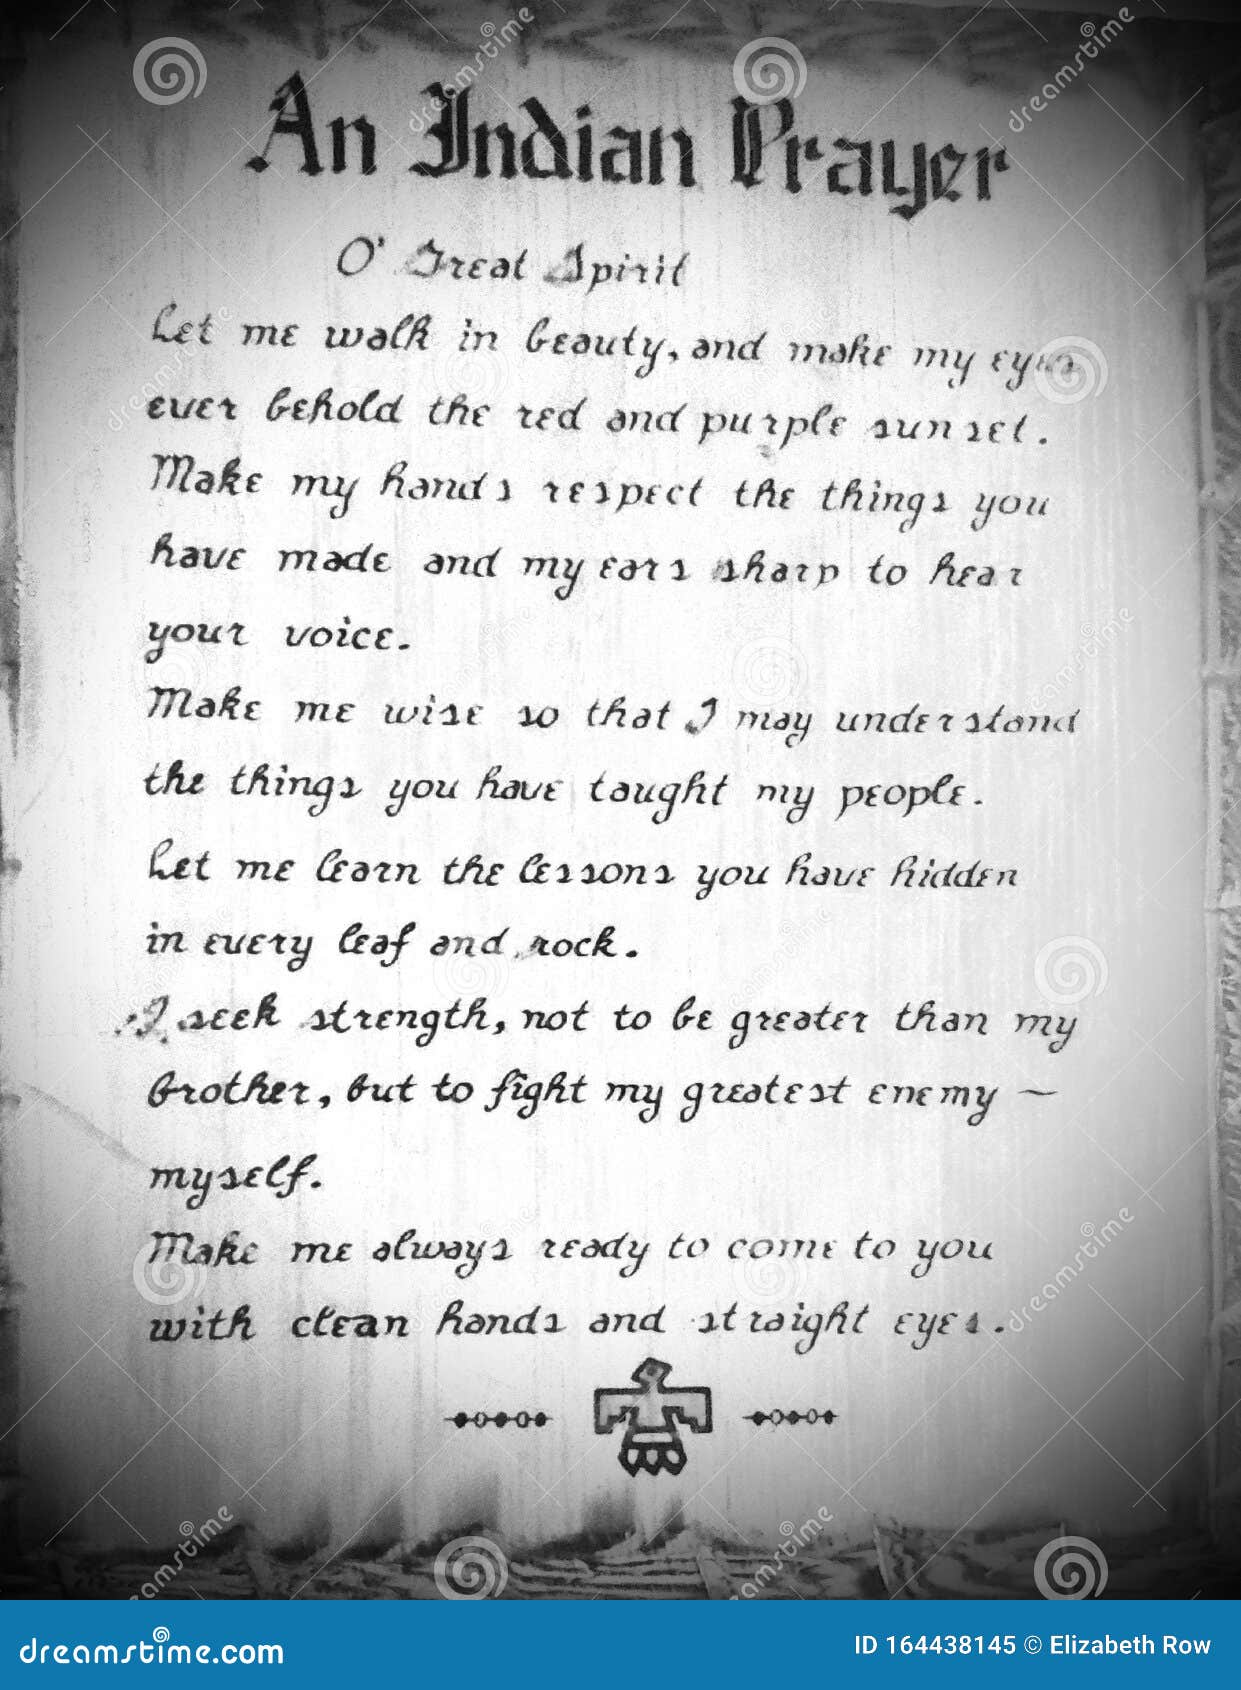 An Indian Prayer
O' Great Spirit
Let me walk in beauty, and make my eyes
ever behold the red and purple sunset.
Make my hands respect the things you
have made and my ears sharp to hear
your voice.
Make me wise so that I may understand
the things you have taught my people.
Let me learn the lessons you have hidden
in every leaf and rock.
I seek strength, not to be greater than my
brother, but to fight my greatest enemy –
myself.
Make me always ready to come to you
with clean hands and straight eyes.
dreamstime.com
ID 164438145 © Elizabeth Row